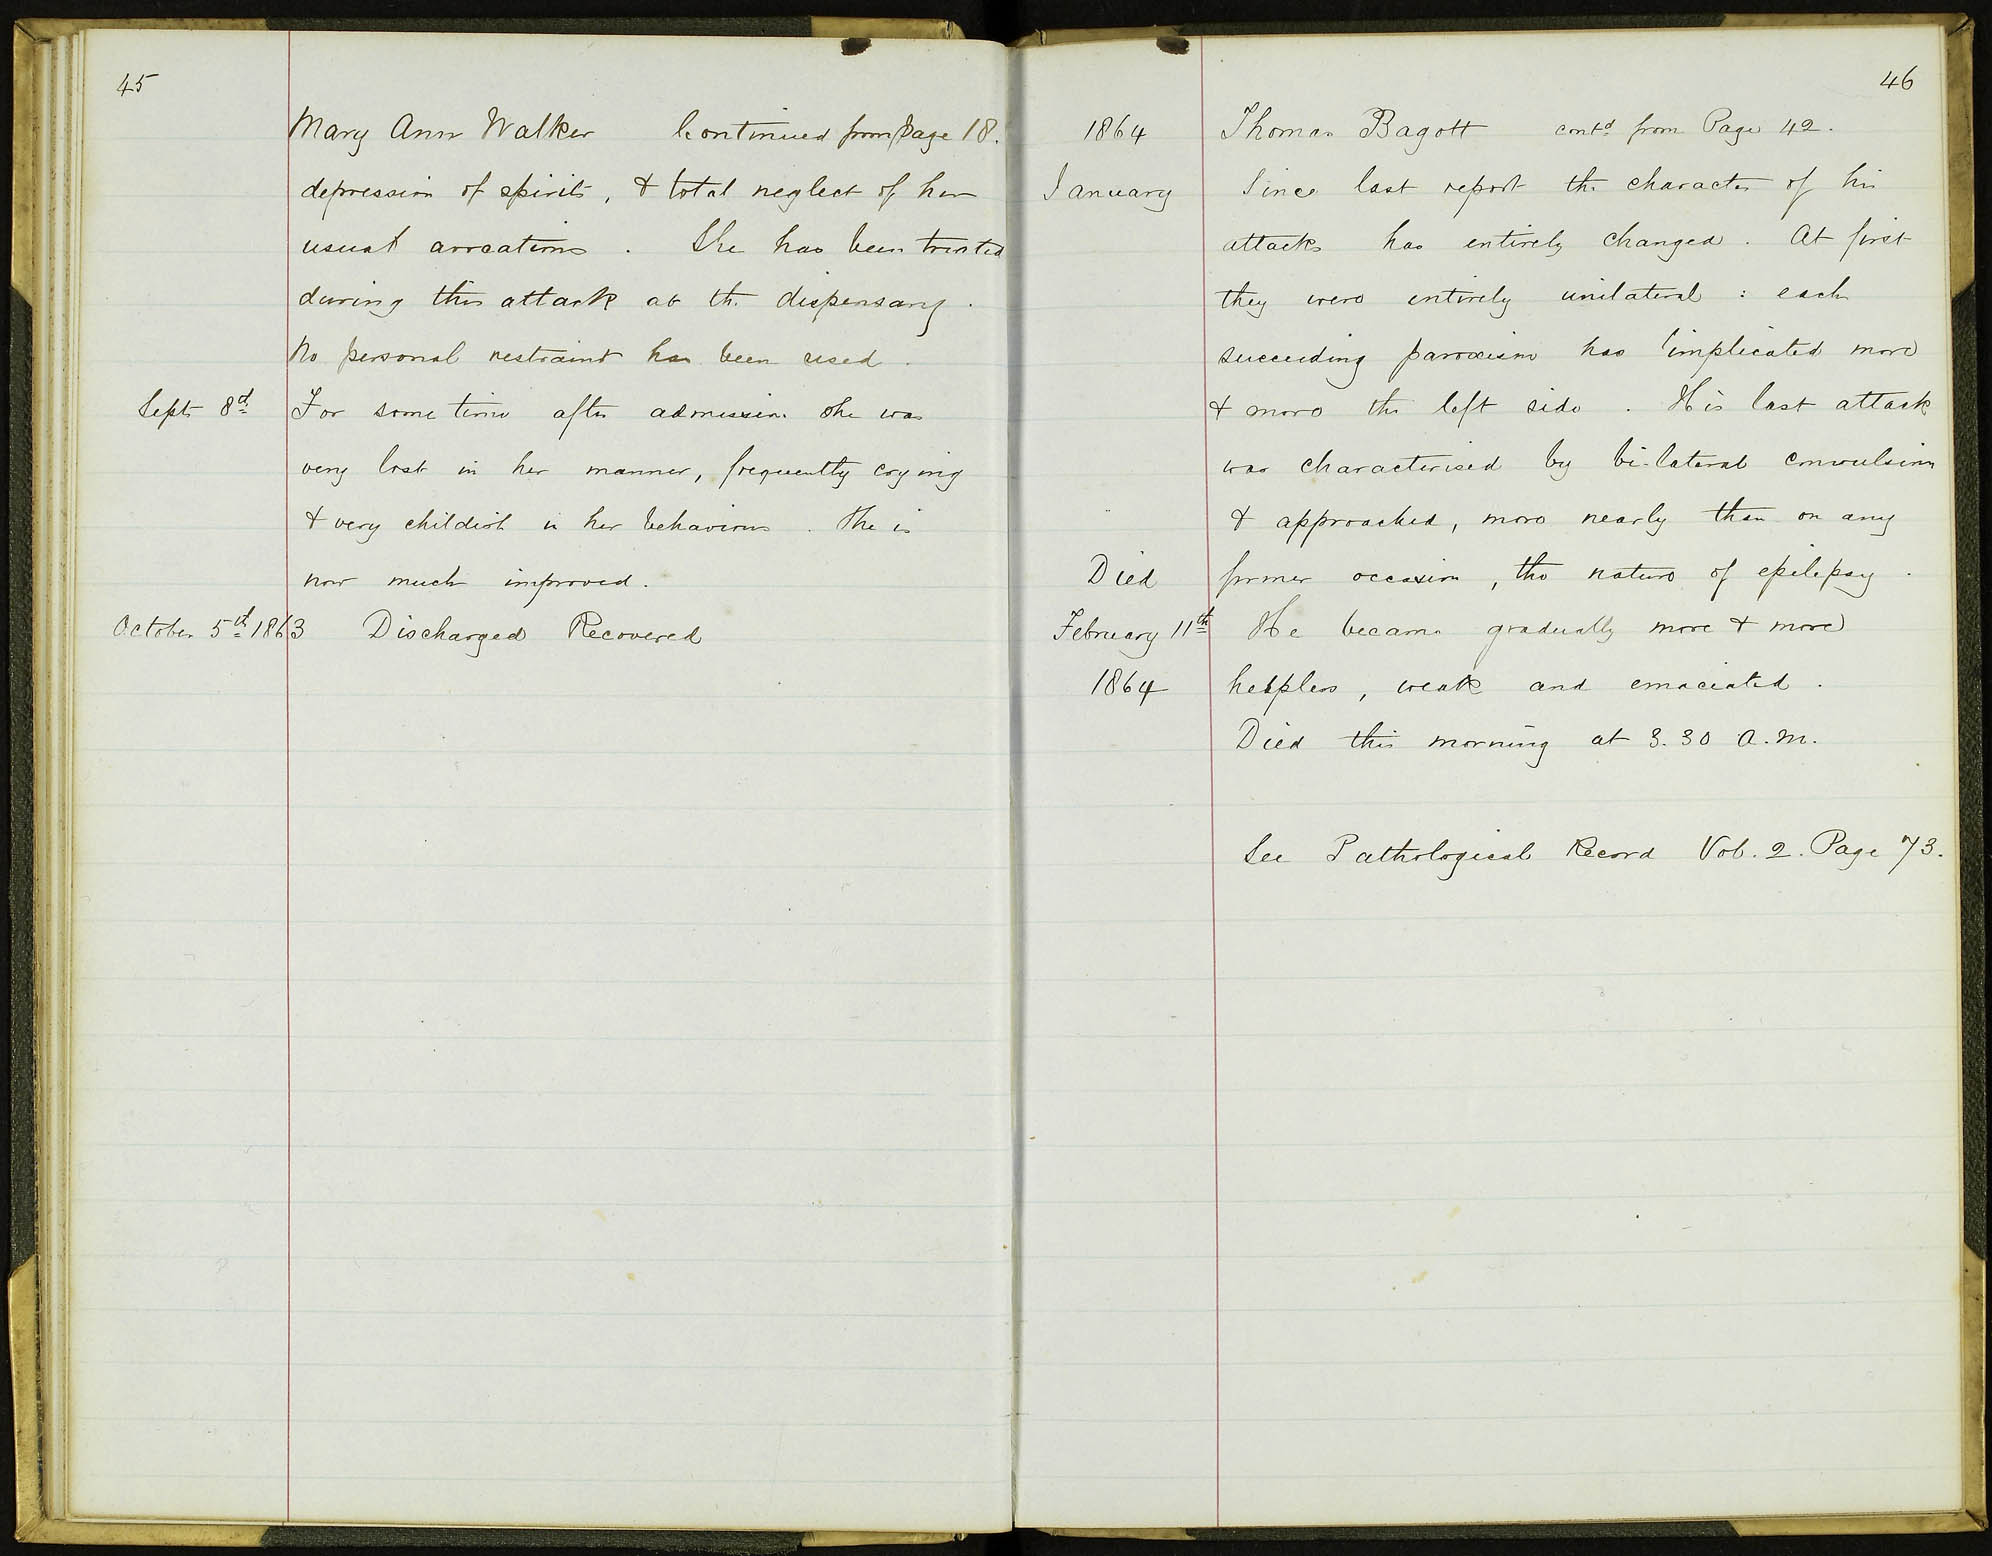 45
Mary Ann Walker Continued from Page 18.
depression of spirits, & total neglect of her
usual avocations. She has been treated
during this attack at the dispensary.
No personal restraint has been used.
Sept 8th For some time after admission she was
very lost in her manner, frequently crying
& very childish in her behaviour. She is
now much improved.
October 5th 1863 Discharged Recovered
46
1864 Thomas Bagott contd from Page 42.
January Since last report the character of his
attacks has entirely changed. At first
they were entirely unilateral: each
succeeding paroxism has implicated more
& more the left side. His last attack
was characterised by bi-lateral convulsion
& approached, more nearly than on any
Died former occasion, the nature of epilepsy.
February 11th He became gradually more & more
1864 helpless, weak and emaciated.
Died this morning at 3.30 A.M.
See Pathological Record Vol. 2. Page 73.